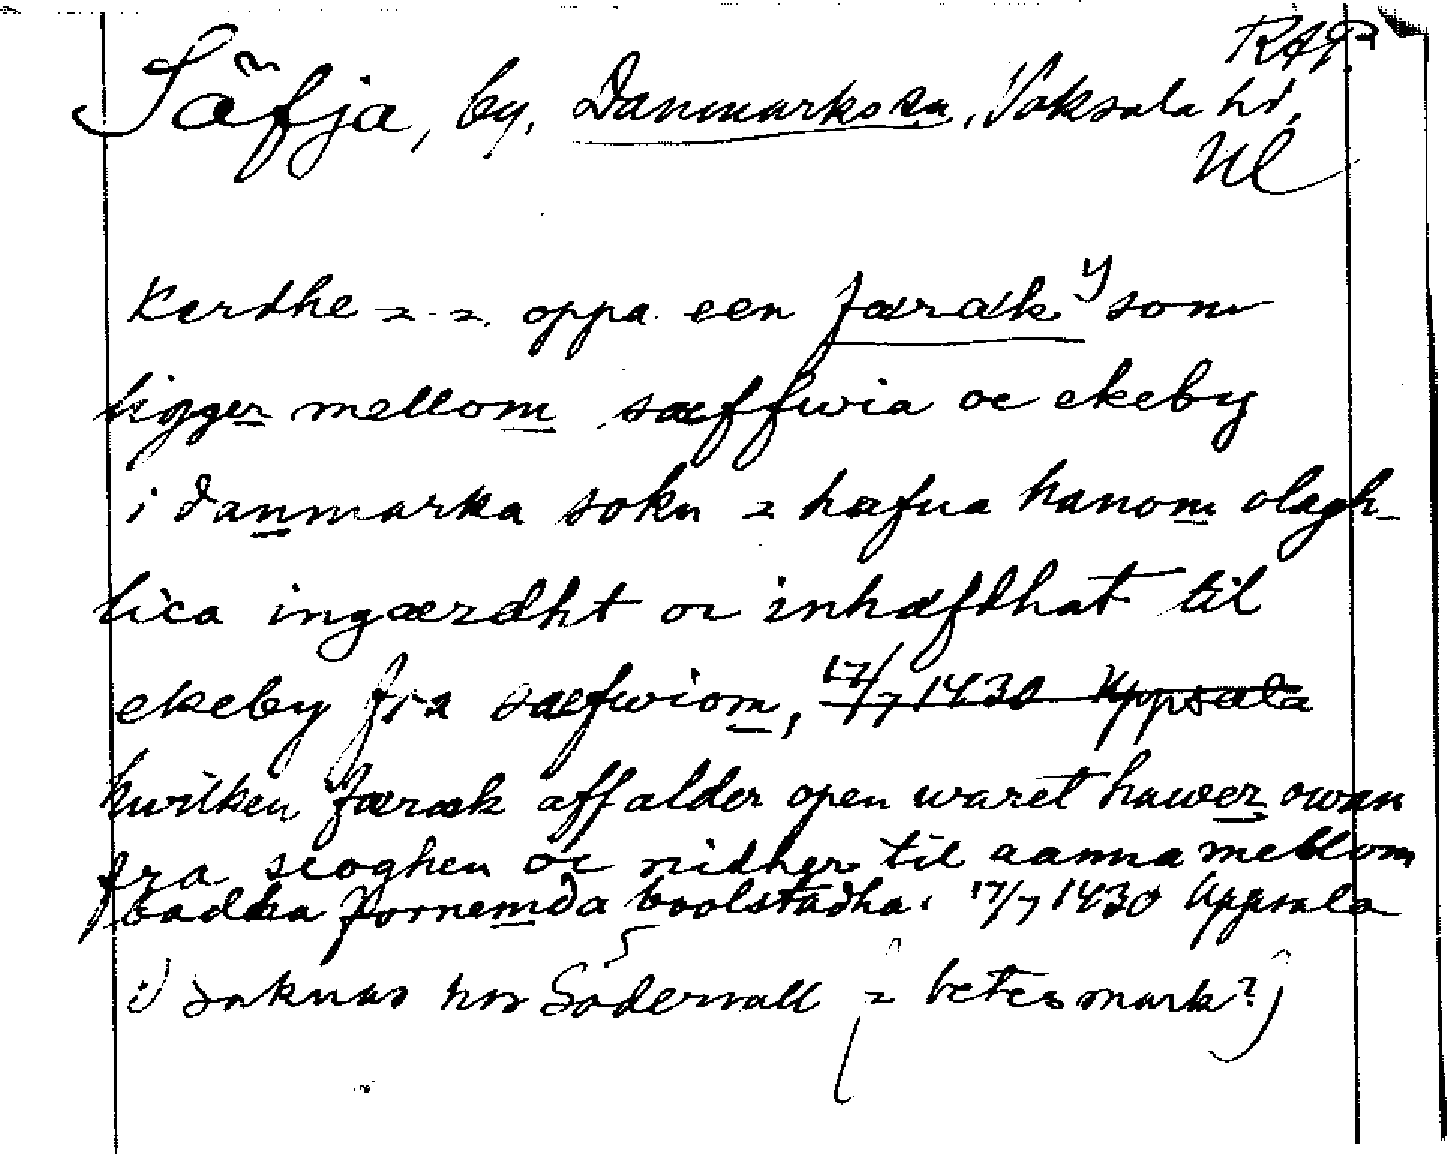 RAP
Säfja, by, Danmarks sn, Vaksala hd,
Ul
Kerdhe - - oppa een færæk 1) som
ligger mellom sæffwia oc ekeby
i danmarka sokn - hafua hanom olagh-
lica ingærdht oc inhæfdhat til
ekeby fra sæfwiom, 17/7 1430 Uppsala
hwilken færæk aff alder open waret hawer owan
fra scoghen oc nidher til aanna mellom
badha fornemda boolstadha. 17/7 1430 Uppsala
1) saknas hos Söderwall (= betesmark?)